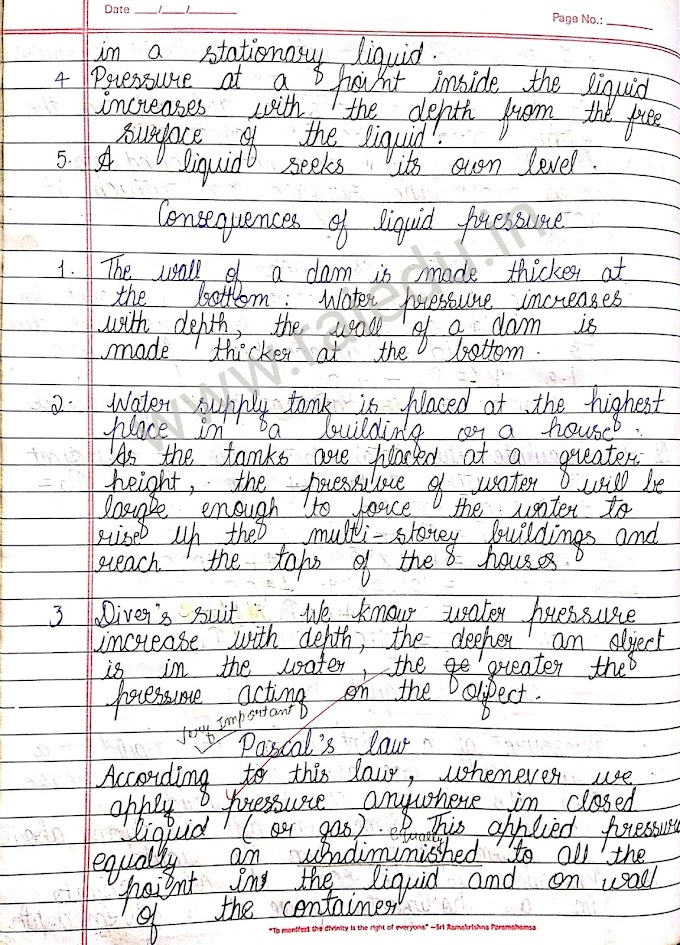 Date ___/___/______
Page No.: ______
in a stationary liquid.
4 Pressure at a point inside the liquid
increases with the depth from the free
surface of the liquid.
5. A liquid seeks its own level.
Consequences of liquid pressure
1. The wall of a dam is made thicker at
the bottom : Water pressure increases
with depth, the wall of a dam is
made thicker at the bottom.
2. Water supply tank is placed at the highest
place in a building or a house.
As the tanks are placed at a greater
height, the pressure of water will be
large enough to force the water to
rise up the multi-storey buildings and
reach the taps of the houses.
3 Diver's suit : We know water pressure
increase with depth, the deeper an object
is in the water, the greater the
pressure acting on the object.
Very Important
Pascal's law
According to this law, whenever we
apply pressure anywhere in closed
liquid (or gas) This applied pressure
equally
equally an undiminished to all the
point in the liquid and on wall
of the container
"To menifest the divinity is the right of everyone" –Sri Ramakrishna Paramahamsa
www.raiedu.in